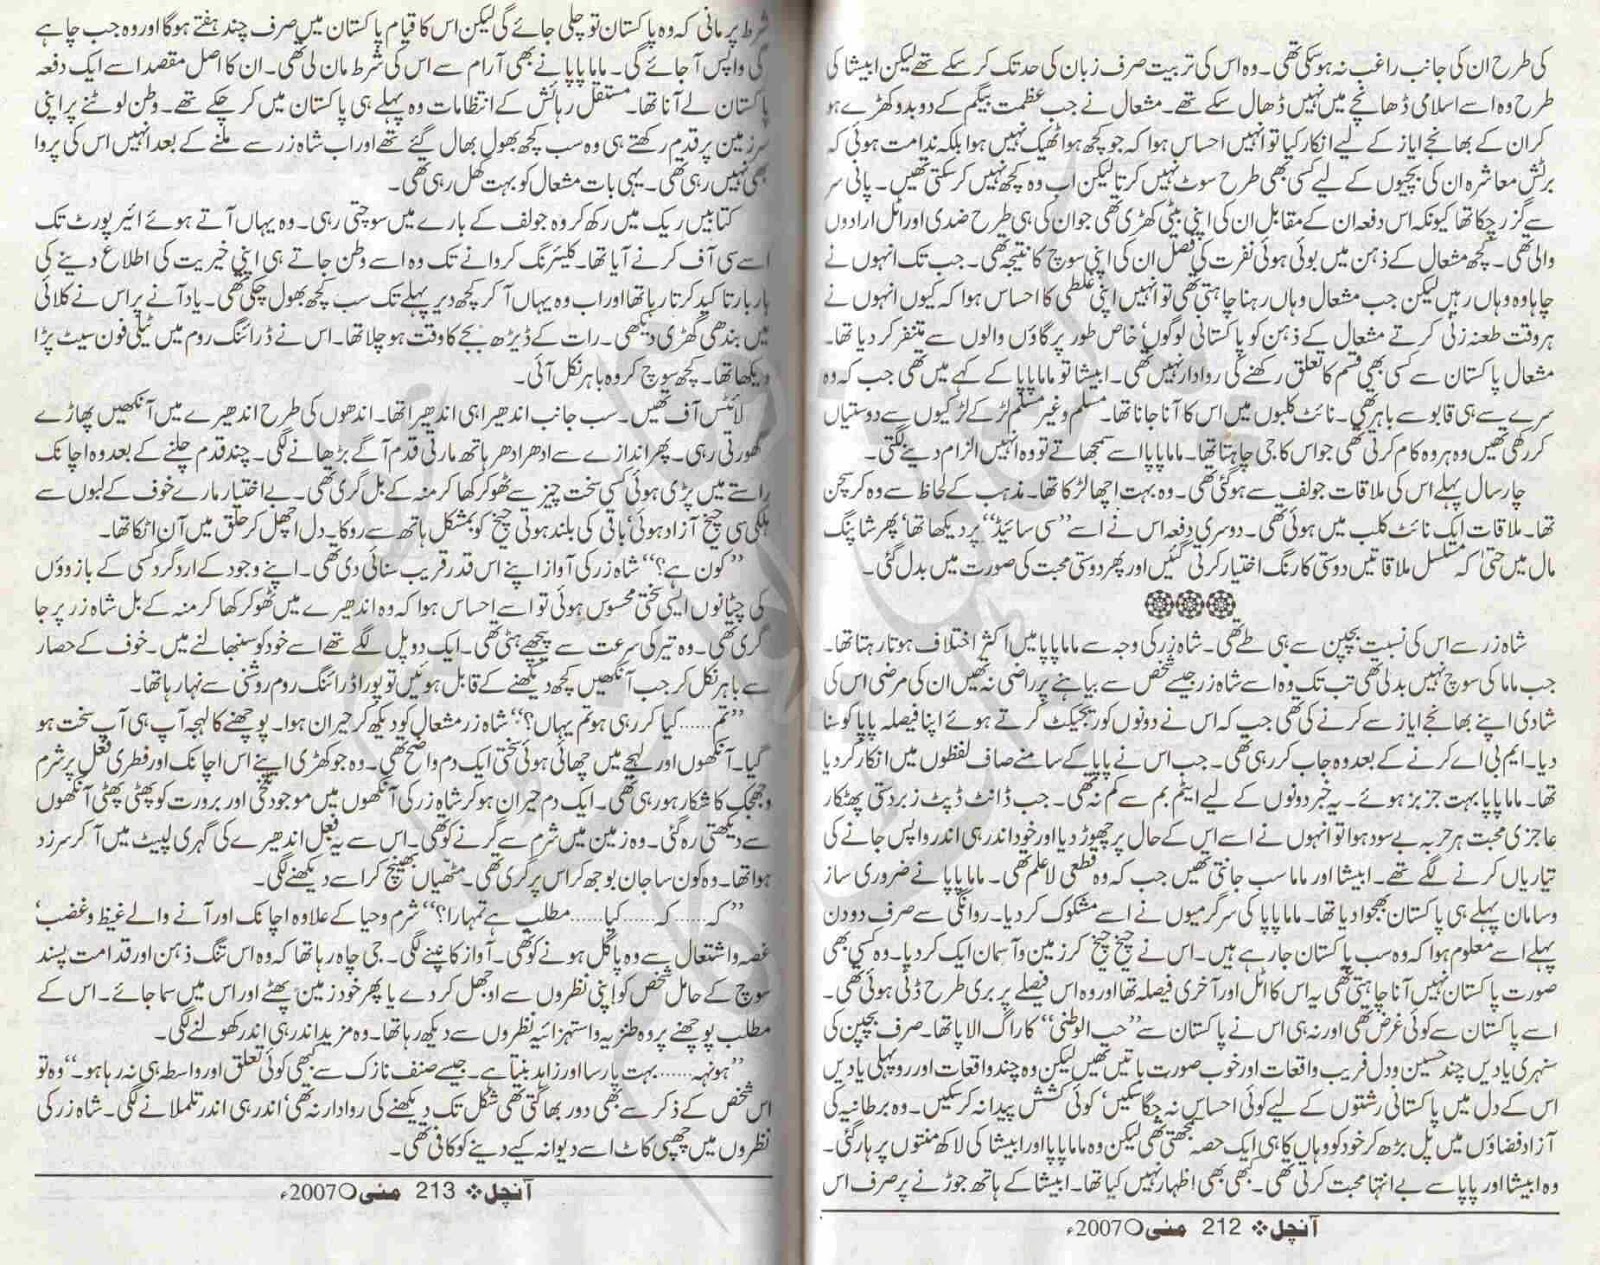 کی طرح ان کی جانب راغب نہ ہو سکی تھی۔ وہ اس کی تربیت صرف زبان کی حد تک کر سکے تھے لیکن ابیشا کی
طرح وہ اسے اسلامی ڈھانچے میں نہیں ڈھال سکے تھے۔ مشعال نے جب عظمت بیگم کے دوبدو کھڑے ہو
کر ان کے بھانجے ایاز کے لیے انکار کیا تو انہیں احساس ہوا کہ جو کچھ ہوا ٹھیک نہیں ہوا بلکہ ندامت ہوئی کہ
برٹش معاشرہ ان کی بچیوں کے لیے کسی بھی طرح سوٹ نہیں کرتا لیکن اب وہ کچھ نہیں کر سکتی تھیں۔ پانی سر
سے گزر چکا تھا کیونکہ اس دفعہ ان کے مقابل ان کی اپنی بیٹی کھڑی تھی جو ان کی ہی طرح ضدی اور اٹل ارادوں
والی تھی۔ کچھ مشعال کے ذہن میں بوئی ہوئی نفرت کی فصل ان کی اپنی سوچ کا نتیجہ تھی۔ جب تک انہوں نے
چاہا وہ وہاں رہیں لیکن جب مشعال وہاں رہنا چاہتی تھی تو انہیں اپنی غلطی کا احساس ہوا کہ کیوں انہوں نے
ہر وقت طعنہ زنی کرتے مشعال کے ذہن کو پاکستانی لوگوں‘ خاص طور پر گاؤں والوں سے متنفر کر دیا تھا۔
مشعال پاکستان سے کسی بھی قسم کا تعلق رکھنے کی روادار نہیں تھی۔ ابیشا تو ماما پاپا کے کہے میں تھی جب کہ وہ
سرے سے ہی قابو سے باہر تھی۔ نائٹ کلبوں میں اس کا آنا جانا تھا۔ مسلم و غیر مسلم لڑکے لڑکیوں سے دوستیاں
کر رکھی تھیں وہ ہر وہ کام کرتی تھی جو اس کا جی چاہتا تھا۔ ماما پاپا اسے سمجھاتے تو وہ انہیں الزام دینے لگتی۔
چار سال پہلے اس کی ملاقات جولف سے ہو گئی تھی۔ وہ بہت اچھا لڑکا تھا۔ مذہب کے لحاظ سے وہ کرسچن
تھا۔ ملاقات ایک نائٹ کلب میں ہوئی تھی۔ دوسری دفعہ اس نے اسے ’’سی سائیڈ‘‘ پر دیکھا تھا‘ پھر شاپنگ
مال میں حتیٰ کہ مسلسل ملاقاتیں دوستی کا رنگ اختیار کرتی گئیں اور پھر دوستی محبت کی صورت میں بدل گئی۔
شاہ زر سے اس کی نسبت بچپن سے ہی طے تھی۔ شاہ زر کی وجہ سے ماما پاپا میں اکثر اختلاف ہوتا رہتا تھا۔
جب ماما کی سوچ نہیں بدلی تھی تب تک وہ اسے شاہ زر جیسے شخص سے بیاہنے پر راضی نہ تھیں ان کی مرضی اس کی
شادی اپنے بھانجے ایاز سے کرنے کی تھی جب کہ اس نے دونوں کو ریجیکٹ کرتے ہوئے اپنا فیصلہ پاپا کو سنا
دیا۔ ایم بی اے کرنے کے بعد وہ جاب کر رہی تھی۔ جب اس نے پاپا کے سامنے صاف لفظوں میں انکار کر دیا
تھا۔ ماما پاپا بہت جزبز ہوئے۔ یہ خبر دونوں کے لیے ایٹم بم سے کم نہ تھی۔ جب ڈانٹ ڈپٹ زبردستی پھٹکار
عاجزی محبت ہر حربہ بے سود ہوا تو انہوں نے اسے اس کے حال پر چھوڑ دیا اور خود اندر ہی اندر واپس جانے کی
تیاریاں کرنے لگے تھے۔ ابیشا اور ماما سب جانتی تھیں جب کہ وہ قطعی لاعلم تھی۔ ماما پاپا نے ضروری ساز
و سامان پہلے ہی پاکستان بھجوا دیا تھا۔ ماما پاپا کی سرگرمیوں نے اسے مشکوک کر دیا۔ روانگی سے صرف دو دن
پہلے اسے معلوم ہوا کہ وہ سب پاکستان جا رہے ہیں۔ اس نے چیخ چیخ کر زمین و آسمان ایک کر دیا۔ وہ کسی بھی
صورت پاکستان نہیں آنا چاہتی تھی یہ اس کا اٹل اور آخری فیصلہ تھا اور وہ اس فیصلے پر بری طرح ڈٹی ہوئی تھی۔
اسے پاکستان سے کوئی غرض تھی اور نہ ہی اس نے پاکستان سے ’’حب الوطنی‘‘ کا راگ الاپا تھا۔ صرف بچپن کی
سنہری یادیں چند حسین و دل فریب واقعات اور خوب صورت باتیں تھیں لیکن وہ چند واقعات اور روپہلی یادیں
اس کے دل میں پاکستانی رشتوں کے لیے کوئی احساس نہ جگا سکیں‘ کوئی کشش پیدا نہ کر سکیں۔ وہ برطانیہ کی
آزاد فضاؤں میں پل بڑھ کر خود کو وہاں کا ہی ایک حصہ سمجھتی تھی لیکن وہ ماما پاپا اور ابیشا کی لاکھ منتوں پر ہار گئی۔
وہ ابیشا اور پاپا سے بے انتہا محبت کرتی تھی۔ کبھی بھی اظہار نہیں کیا تھا۔ ابیشا کے ہاتھ جوڑنے پر صرف اس
آنچل ❖ 212 مئی ○2007ء
شرط پر مانی کہ وہ پاکستان تو چلی جائے گی لیکن اس کا قیام پاکستان میں صرف چند ہفتے ہوگا اور وہ جب چاہے
گی واپس آ جائے گی۔ ماما پاپا نے بھی آرام سے اس کی شرط مان لی تھی۔ ان کا اصل مقصد اسے ایک دفعہ
پاکستان لے آنا تھا۔ مستقل رہائش کے انتظامات وہ پہلے ہی پاکستان میں کر چکے تھے۔ وطن لوٹنے پر اپنی
سرزمین پر قدم رکھتے ہی وہ سب کچھ بھول بھال گئے تھے اور اب شاہ زر سے ملنے کے بعد انہیں اس کی پروا
بھی نہیں رہی تھی۔ یہی بات مشعال کو بہت کھل رہی تھی۔
کتابیں ریک میں رکھ کر وہ جولف کے بارے میں سوچتی رہی۔ وہ یہاں آتے ہوئے ائیر پورٹ تک
اسے سی آف کرنے آیا تھا۔ کلیئرنگ کروانے تک وہ اسے وطن جاتے ہی اپنی خیریت کی اطلاع دینے کی
بار بار تاکید کرتا رہا تھا اور اب وہ یہاں آ کر کچھ دیر پہلے تک سب کچھ بھول چکی تھی۔ یاد آنے پر اس نے کلائی
میں بندھی گھڑی دیکھی۔ رات کے ڈیڑھ بجے کا وقت ہو چلا تھا۔ اس نے ڈرائنگ روم میں ٹیلی فون سیٹ پڑا
دیکھا تھا۔ کچھ سوچ کر وہ باہر نکل آئی۔
لائٹس آف تھیں۔ سب جانب اندھیرا ہی اندھیرا تھا۔ اندھوں کی طرح اندھیرے میں آنکھیں پھاڑے
گھورتی رہی۔ پھر اندازے سے ادھر ادھر ہاتھ مارتی قدم آگے بڑھانے لگی۔ چند قدم چلنے کے بعد وہ اچانک
راستے میں پڑی ہوئی کسی سخت چیز سے ٹھوکر کھا کر منہ کے بل گری تھی۔ بے اختیار مارے خوف کے لبوں سے
ہلکی سی چیخ آزاد ہوئی‘ باقی کی بلند ہوتی چیخ کو بمشکل ہاتھ سے روکا۔ دل اچھل کر حلق میں آن اٹکا تھا۔
’’کون ہے؟‘‘ شاہ زر کی آواز اپنے اس قدر قریب سنائی دی تھی۔ اپنے وجود کے اردگرد کسی کے بازوؤں
کی چٹانوں ایسی سختی محسوس ہوئی تو اسے احساس ہوا کہ وہ اندھیرے میں ٹھوکر کھا کر منہ کے بل شاہ زر پر جا
گری تھی۔ وہ تیر کی سرعت سے پیچھے ہٹی تھی۔ ایک دو پل لگے تھے اسے خود کو سنبھالنے میں۔ خوف کے حصار
سے باہر نکل کر جب آنکھیں کچھ دیکھنے کے قابل ہوئیں تو پورا ڈرائنگ روم روشنی سے نہا رہا تھا۔
’’تم...... کیا کر رہی ہو تم یہاں؟‘‘ شاہ زر مشعال کو دیکھ کر حیران ہوا۔ پوچھنے کا لہجہ آپ ہی آپ سخت ہو
گیا۔ آنکھوں اور لہجے میں چھائی ہوئی سختی ایک دم واضح تھی۔ وہ جو کھڑی اپنے اس اچانک اور فطری فعل پر شرم
و جھجک کا شکار ہو رہی تھی۔ ایک دم حیران ہو کر شاہ زر کی آنکھوں میں موجود تلخی اور برورت کو پھٹی پھٹی آنکھوں
سے دیکھتی رہ گئی۔ وہ زمین میں شرم سے گرنے کو تھی۔ اس سے یہ فعل اندھیرے کی گہری لپیٹ میں آ کر سرزد
ہوا تھا۔ وہ کون سا جان بوجھ کر اس پر گری تھی۔ مٹھیاں بھینچ کر اسے دیکھنے لگی۔
’’کہ...... کہ...... کیا...... مطلب ہے تمہارا؟‘‘ شرم و حیا کے علاوہ اچانک اور آنے والے غیظ و غضب‘
غصہ و اشتعال سے وہ پاگل ہونے کو تھی۔ آواز کانپنے لگی۔ جی چاہ رہا تھا کہ وہ اس تنگ ذہن اور قدامت پسند
سوچ کے حامل شخص کو اپنی نظروں سے اوجھل کر دے یا پھر خود زمین پھٹے اور اس میں سما جائے۔ اس کے
مطلب پوچھنے پر وہ طنزیہ و استہزائیہ نظروں سے دیکھ رہا تھا۔ وہ مزید اندر ہی اندر کھولنے لگی۔
’’ہونہہ...... بہت پارسا اور زاہد بنتا ہے۔ جیسے صنف نازک سے کبھی کوئی تعلق اور واسطہ ہی نہ رہا ہو۔‘‘ وہ تو
اس شخص کے ذکر سے بھی دور بھاگتی تھی شکل تک دیکھنے کی روادار نہ تھی‘ اندر ہی اندر تلملانے لگی۔ شاہ زر کی
نظروں میں چھپی کاٹ اسے دیوانہ کیے دینے کو کافی تھی۔
آنچل ❖ 213 مئی ○2007ء